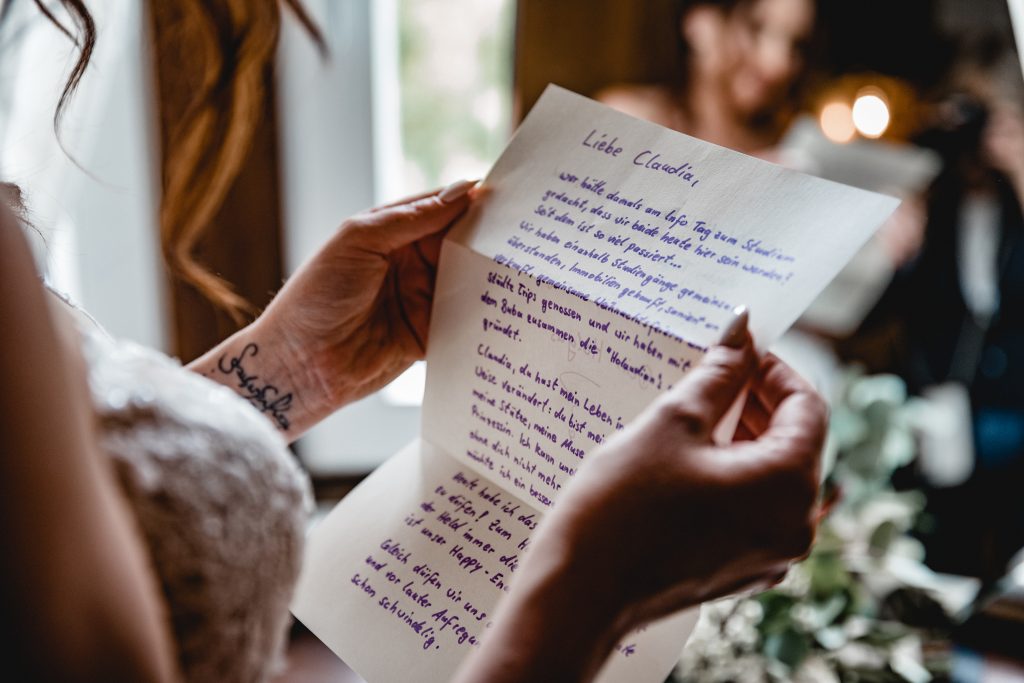 Liebe Claudia,
wer hätte damals am Info Tag zum Studium
gedacht, dass wir beide heute hier sein werden?
Seit dem ist so viel passiert...
Wir haben einanhalb Studiengänge gemeinsam
überstanden, Immobilien gekauft, saniert
verkauft, gemeinsame
städte Trips genossen und wir haben mit
dem Bubu zusammen die "Holaudian's"
gründet.
Claudia, du hast mein Leben
Weise verändert: du bist mein
meine Stütze, meine Muse
Prinzessin. Ich kann und
ohne dich nicht mehr
möchte ich ein besser
Heute habe ich das
zu dürfen! Zum
der Held immer die
ist unser Happy-End
Gleich dürfen wir uns
und vor lauter Aufregung
schon schwindelig.